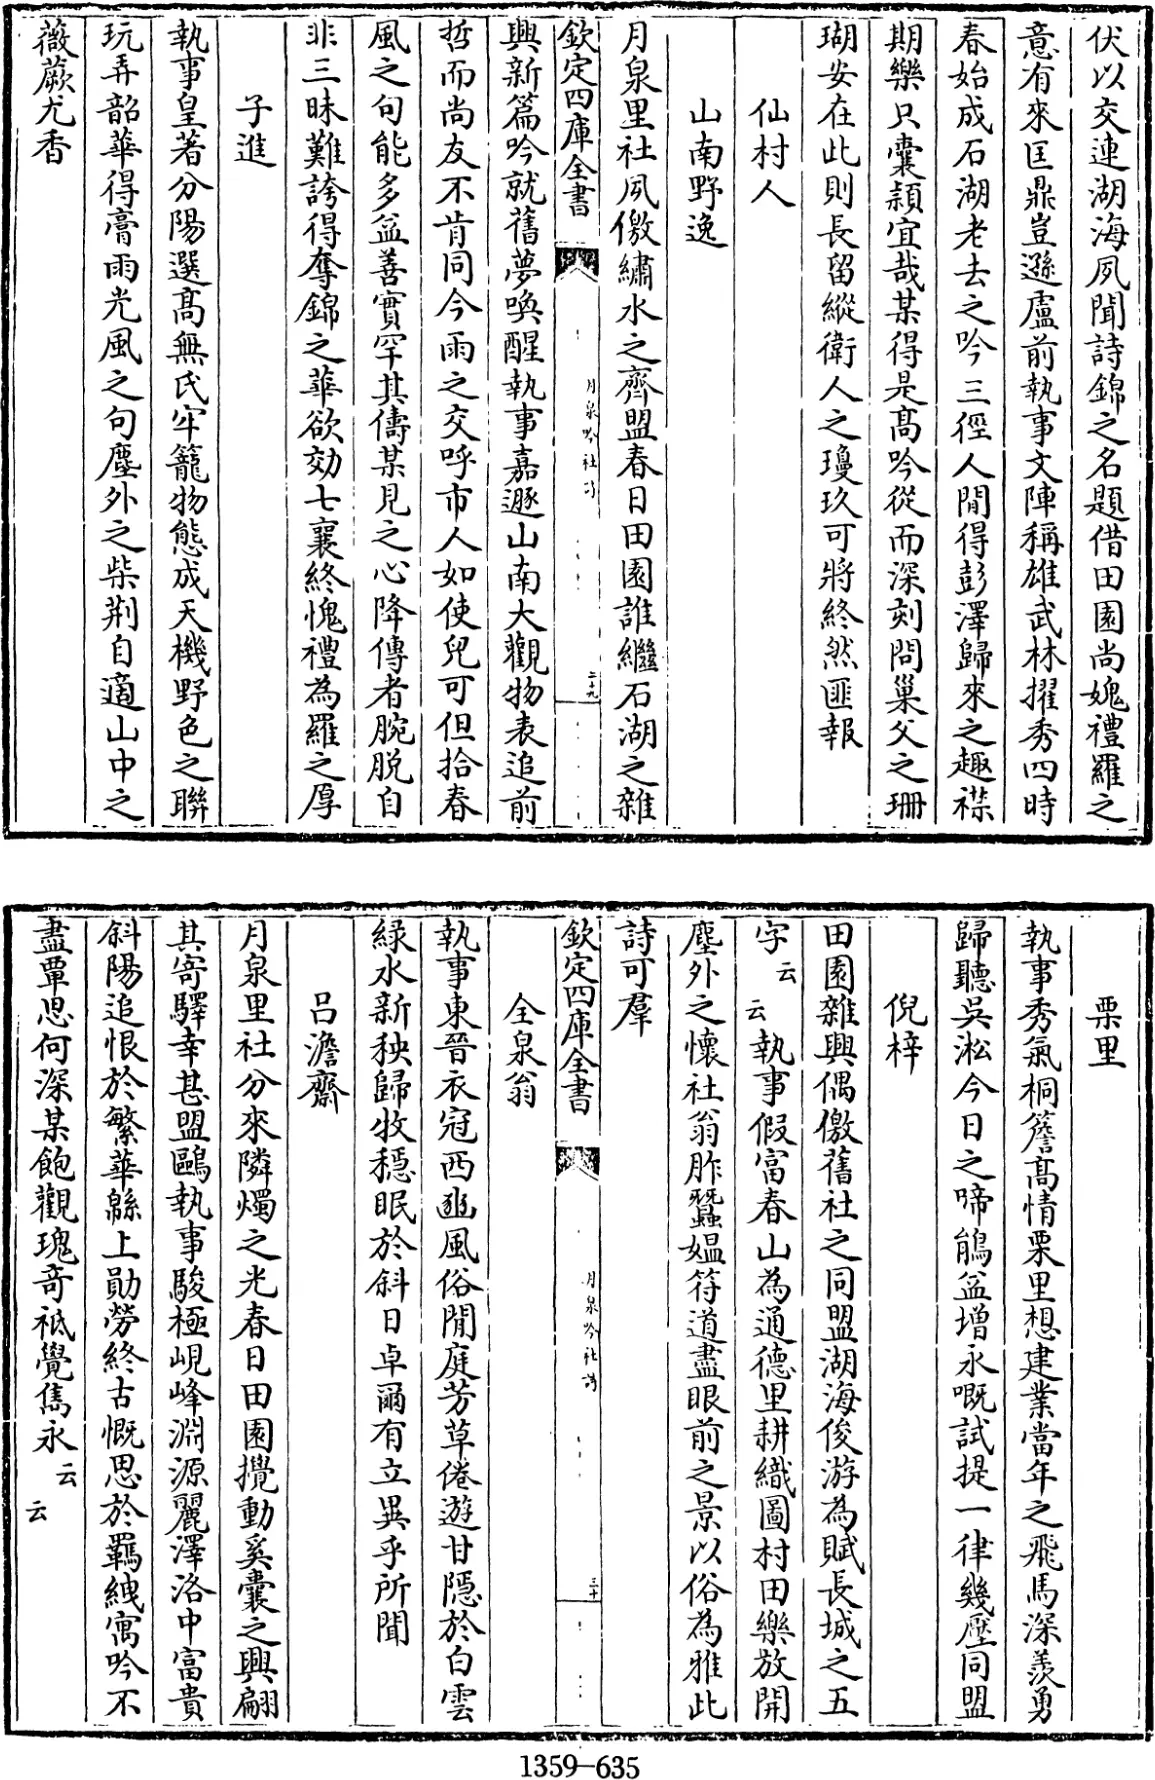 伏以交連湖海夙聞詩錦之名題借田園尚媿禮羅之
意有來匡鼎豈遜盧前執事文陣稱雄武林擢秀四時
春始成石湖老去之吟三徑人間得彭澤歸來之趣襟
期樂只囊頴宜哉某得是髙吟從而深刻問巢父之珊
瑚安在此則長留縱衛人之瓊玖可將終然匪報
仙村人
山南野逸
月泉里社夙儌繡水之齊盟春日田園誰繼石湖之雜
欽定四庫全書
月泉吟社詩
二十九
興新篇吟就舊夢喚醒執事嘉遯山南大觀物表追前
哲而尚友不肯同今雨之交呼市人如使兒可但拾春
風之句能多益善實罕其儔某見之心降傳者腕脱自
非三昧難誇得奪錦之華欲効七襄終愧禮為羅之厚
子進
執事皇著分陽選髙無氏牢籠物態成天機野色之聯
玩弄韶華得膏雨光風之句塵外之柴荆自適山中之
薇蕨尤香
栗里
執事秀氣桐簷髙情栗里想建業當年之飛馬深羨勇
歸聽吳淞今日之啼鵑益增永嘅試提一律幾壓同盟
倪梓
田園雜興偶儌舊社之同盟湖海俊游為賦長城之五
字云云執事假富春山為通德里耕織圖村田樂放開
塵外之懷社翁胙蠶媪符道盡眼前之景以俗為雅此
詩可羣
欽定四庫全書
月泉吟社詩
三十
全泉翁
執事東晉衣冠西豳風俗閒庭芳草倦遊甘隱於白雲
緑水新秧歸牧穩眠於斜日卓爾有立異乎所聞
呂澹齋
月泉里社分來隣燭之光春日田園攪動奚囊之興翩
其寄驛幸甚盟鷗執事駿極峴峰淵源麗澤洛中富貴
斜陽追恨於繁華緜上勛勞終古慨思於羈絏寓吟不
盡覃思何深某飽觀瑰奇祗覺雋永云云
1359-635